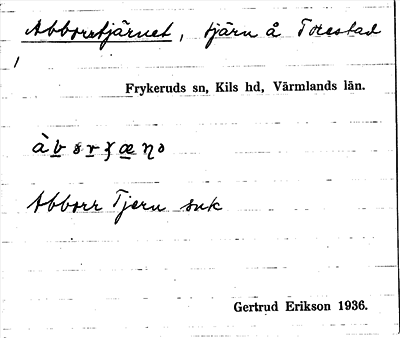 Abborrtjärnet, tjärn å Torestad
/
Frykeruds sn, Kils hd, Värmlands län.
Abborr Tjern suk
Gertrud Erikson 1936.